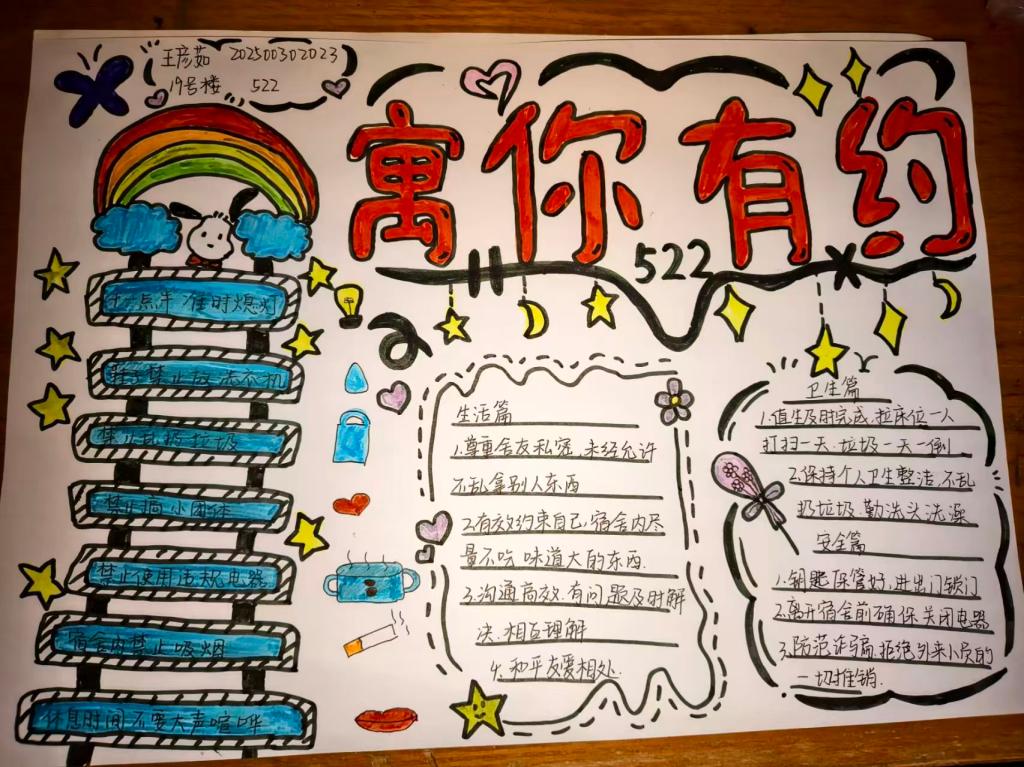 王彦茹 202500302023
19号楼 522
寓你有约
522
十一点半 准时熄灯
禁止放洗衣机
禁止乱扔垃圾
禁止搞小团体
禁止使用违规电器
宿舍内禁止吸烟
休息时间不要大声喧哗
生活篇
1.尊重舍友私密,未经允许
不乱拿别人东西
2.有效约束自己,宿舍内尽
量不吃 味道大的东西.
3.沟通高效.有问题及时解
决.相互理解
4.和平友爱相处.
卫生篇
1.值生及时完成.拉床位一人
打扫一天.垃圾一天一倒
2.保持个人卫生整洁.不乱
扔垃圾.勤洗头洗澡
安全篇
1.钥匙保管好,进出门锁门
2.离开宿舍前确保关闭电器
3.防范诈骗,拒绝外来人员的
一切推销.